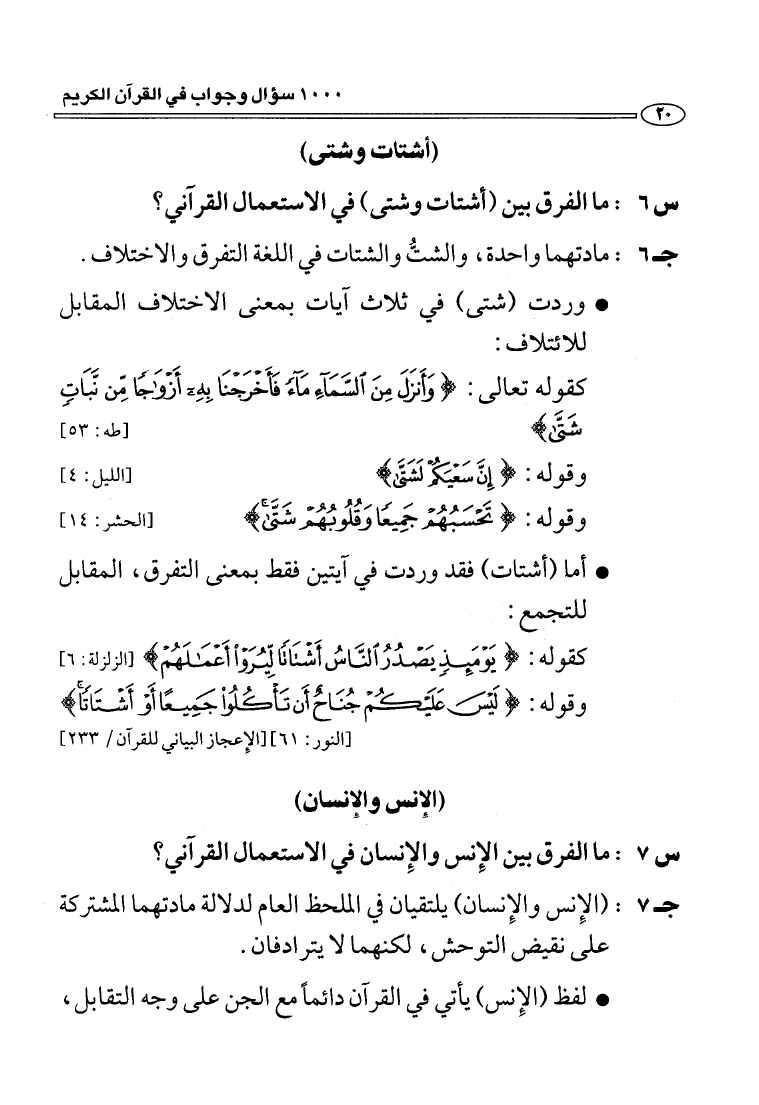 ١٠٠٠ سؤال وجواب في القرآن الكريم
٢٠
(أشتات وشتى)
س ٦ : ما الفرق بين (أشتات وشتى) في الاستعمال القرآني؟
جـ ٦ : مادتهما واحدة، والشتُّ والشتات في اللغة التفرق والاختلاف.
● وردت (شتى) في ثلاث آيات بمعنى الاختلاف المقابل
للائتلاف:
كقوله تعالى: ﴿ وَأَنزَلَ مِنَ ٱلسَّمَآءِ مَآءً فَأَخْرَجْنَا بِهِۦٓ أَزْوَٰجًا مِّن نَّبَاتٍ
شَتَّىٰ﴾ [طه: ٥٣]
وقوله: ﴿ إِنَّ سَعْيَكُمْ لَشَتَّىٰ﴾ [الليل: ٤]
وقوله: ﴿ تَحْسَبُهُمْ جَمِيعًا وَقُلُوبُهُمْ شَتَّىٰۚ﴾ [الحشر: ١٤]
● أما (أشتات) فقد وردت في آيتين فقط بمعنى التفرق، المقابل
للتجمع:
كقوله: ﴿ يَوْمَئِذٍ يَصْدُرُ ٱلنَّاسُ أَشْتَاتًا لِّيُرَوْا۟ أَعْمَـٰلَهُمْ﴾ [الزلزلة: ٦]
وقوله: ﴿ لَيْسَ عَلَيْكُمْ جُنَاحٌ أَن تَأْكُلُوا۟ جَمِيعًا أَوْ أَشْتَاتًاۚ﴾
[النور: ٦١] [الإعجاز البياني للقرآن/ ٢٣٣]
(الإنس والإنسان)
س ٧ : ما الفرق بين الإنس والإنسان في الاستعمال القرآني؟
جـ ٧ : (الإنس والإنسان) يلتقيان في الملحظ العام لدلالة مادتهما المشتركة
على نقيض التوحش، لكنهما لا يترادفان.
● لفظ (الإنس) يأتي في القرآن دائماً مع الجن على وجه التقابل،